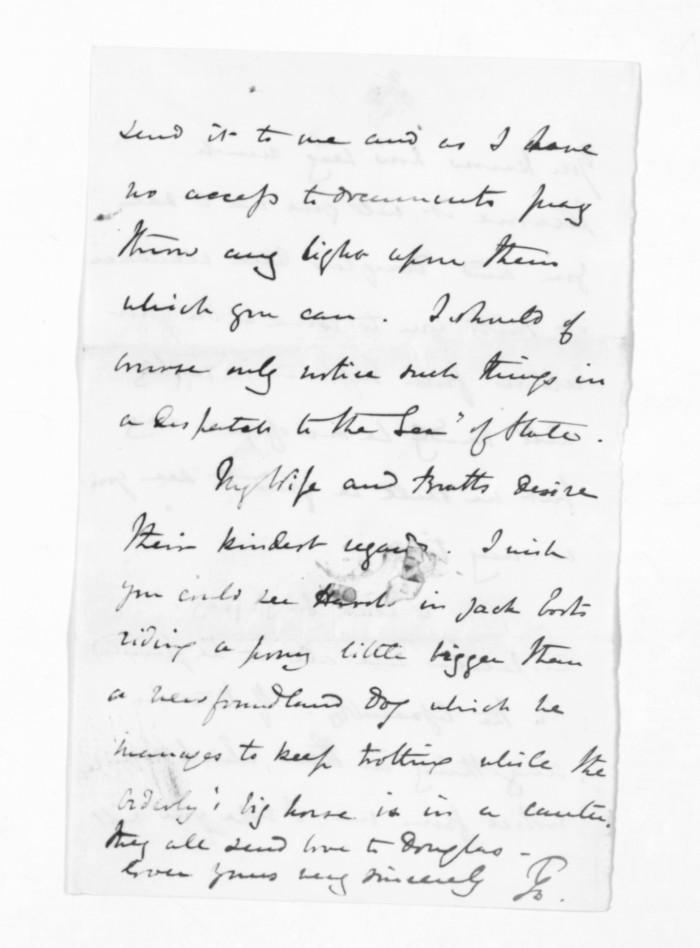 send it to me and as I have
no access to documents pray
throw any light upon them
which you can. I should of
course only notice such things in
a Despatch to the Secy of State.
My Wife and Bratts desire
their kindest regards. I wish
you could see Harold in Jack boots
riding a pony little bigger than
a newfoundland Dog which he
manages to keep trotting while the
orderly's big horse is in a canter.
they all send love to Douglas -
Ever yours very sincerely